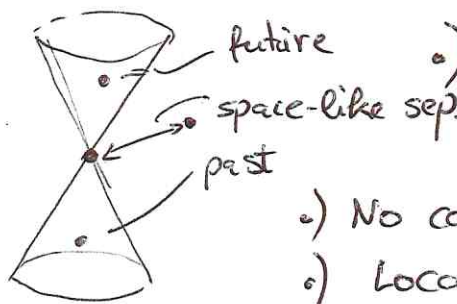 future
•)
space-like sep.
past
•) No co
•) Loca